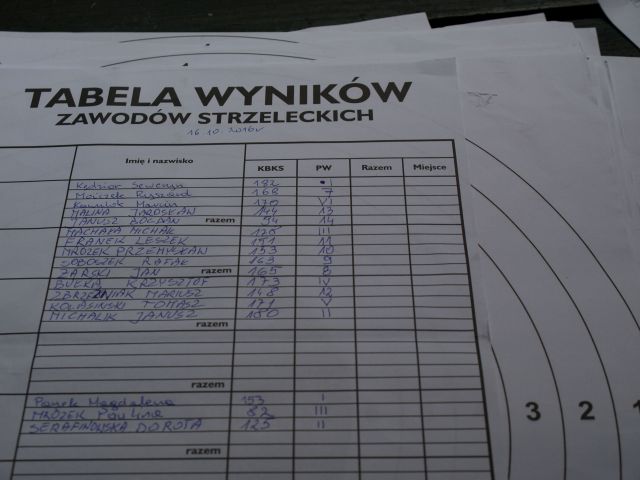 TABELA WYNIKÓW
ZAWODÓW STRZELECKICH
16.10.2016r
Imię i nazwisko KBKS PW Razem Miejsce
Kędzior Seweryn 182 I
Mroczek Ryszard 168 7
Marcin 170 VI
MALINA JAROSŁAW 144 13
JANUSZ BOGDAN razem 94 14
MACHAŁA MICHAŁ III
FRANEK LESZEK 151 11
MROZEK PRZEMYSŁAW 153 10
SOBOSZEK RAFAŁ 163 9
ŻARSKI JAN razem 165 8
BUŁKA KRZYSZTOF 173 IV
ZBRZEŹNIAK MARIUSZ 148 12
KOLASIŃSKI TOMASZ 171 V
MICHALIK JANUSZ 180 II
razem
razem
Panek Magdalena 153 I
MROZEK Paulina 82 III
SERAFINOWSKA DOROTA 125 II
razem
3 2 1